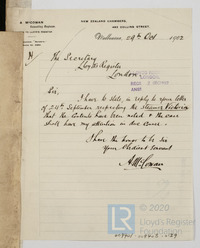 NEW ZEALAND CHAMBERS,
483 COLLINS STREET,
Melbourne, 29th Oct 1902
The Secretary
Lloyd's Register
London
Sir,
I have to state, in reply to your letter
of 24th September respecting the Steamer
that the contents have been noted & the case
shall have my attention in due course.
I have the honor to be Sir
Your Obedient Servant
© 2020
Lloyd's Register
Foundation